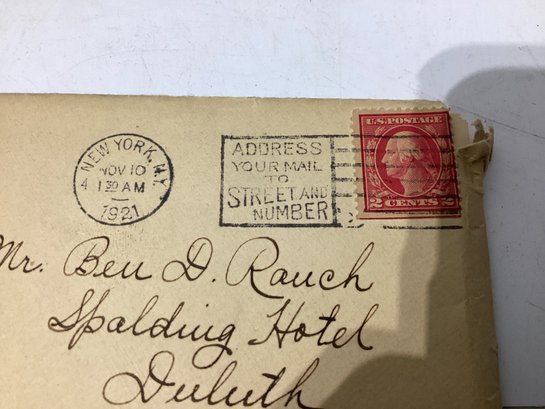 NEW YORK, N.Y.
4
NOV 10
1 30 AM
1921
ADDRESS
YOUR MAIL
TO
STREET AND
NUMBER
U.S. POSTAGE
2 CENTS 2
Mr. Ben D. Rauch
Spalding Hotel
Duluth